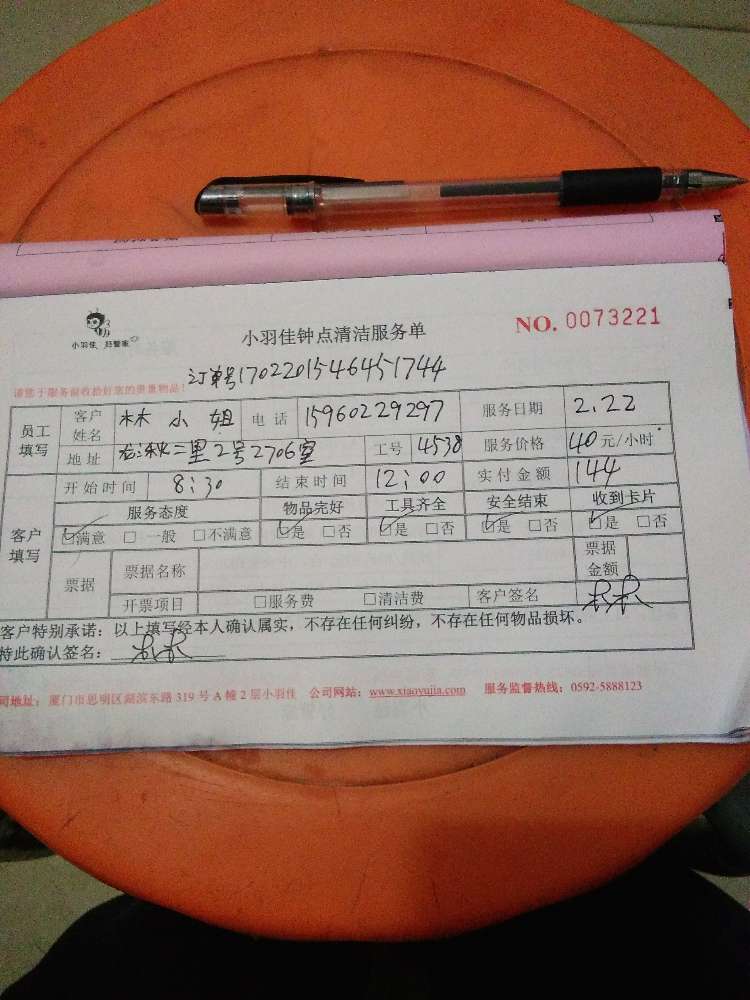 小羽佳 好管家
小羽佳钟点清洁服务单
NO. 0073221
订单号1702201546451744
请您于服务前收拾好您的贵重物品!
员工填写 客户姓名 林小姐 电话 15960229297 服务日期 2.22
地址 二里2号2706室 工号 4538 服务价格 40元/小时
客户填写 开始时间 8:30 结束时间 12:00 实付金额 144
服务态度 物品完好 工具齐全 安全结束 收到卡片
☑满意 □一般 □不满意 ☑是 □否 ☑是 □否 ☑是 □否 ☑是 □否
票据 票据名称 票据金额
开票项目 □服务费 □清洁费 客户签名 林
客户特别承诺:以上填写经本人确认属实,不存在任何纠纷,不存在任何物品损坏。
特此确认签名: 林
司地址:厦门市思明区湖滨东路319号A幢2层小羽佳 公司网站:www.xiaoyujia.com 服务监督热线:0592-5888123